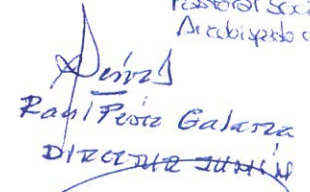 Pastoral Soci
Arzobispado
Raul Pérez Galarza
DIRECTOR JUNÍN